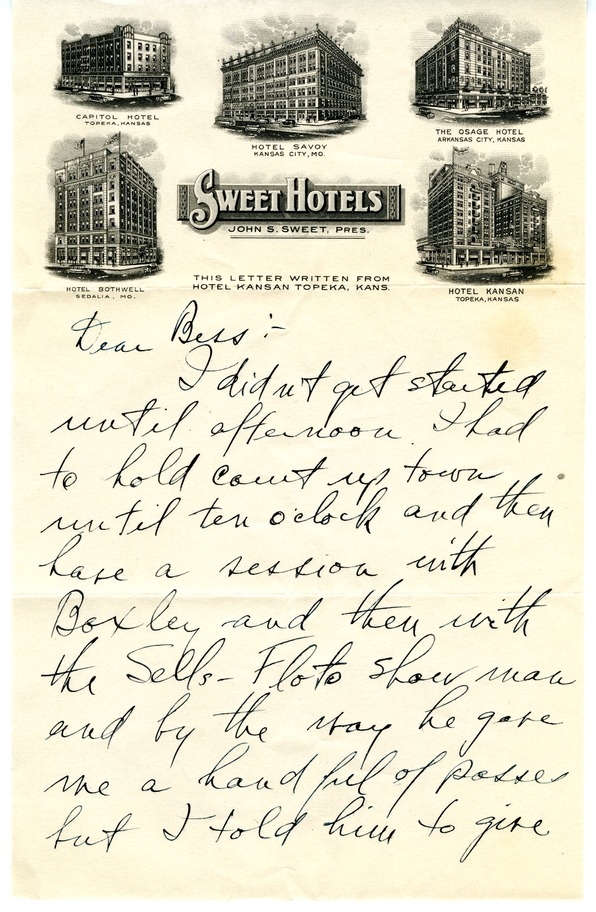 CAPITOL HOTEL
TOPEKA, KANSAS
HOTEL SAVOY
KANSAS CITY, MO.
THE OSAGE HOTEL
ARKANSAS CITY, KANSAS
SWEET HOTELS
JOHN S. SWEET, PRES.
HOTEL BOTHWELL
SEDALIA, MO.
THIS LETTER WRITTEN FROM
HOTEL KANSAN TOPEKA, KANS.
HOTEL KANSAN
TOPEKA, KANSAS
Dear Bess :-
I didn't get started
until afternoon. I had
to hold court up town
until ten o'clock and then
have a session with
Boxley and then with
the Sells-Floto show man
and by the way he gave
me a hand ful of passes
but I told him to give